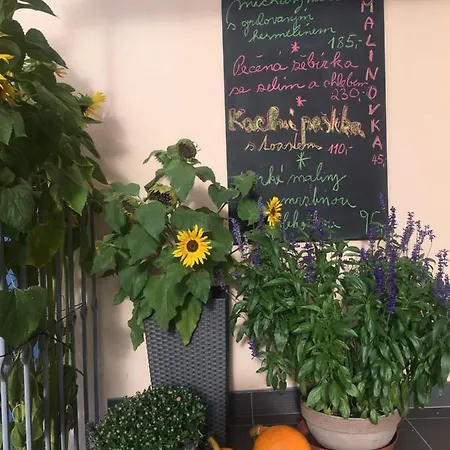 s grilovaným
hermelínem
185,-
Pečená žebírka
se zelím a chlebem
230,-
Kachní paštika
s toastem 110,-
maliny
zmrzlinou
95,-
MALINOVKA
45,-